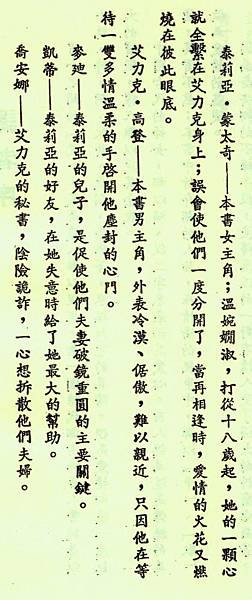 泰莉亞·蒙太奇——本書女主角；溫婉嫻淑，打從十八歲起，她的一顆心
就全繫在艾力克身上；誤會使他們一度分開了，當再相逢時，愛情的火花又燃
燒在彼此眼底。
艾力克·高登——本書男主角，外表冷漠、倨傲，難以親近，只因他在等
待一雙多情溫柔的手啓開他塵封的心門。
麥迪——泰莉亞的兒子，是促使他們夫妻破鏡重圓的主要關鍵。
凱蒂——泰莉亞的好友，在她失意時給了她最大的幫助。
喬安娜——艾力克的秘書，陰險詭詐，一心想拆散他們夫婦。